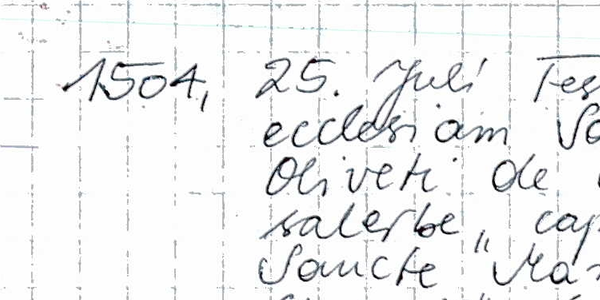 1504, 25. Juli Tes
ecclesiam Sa
Oliveti de
salerbe, cap
Sancte Mar